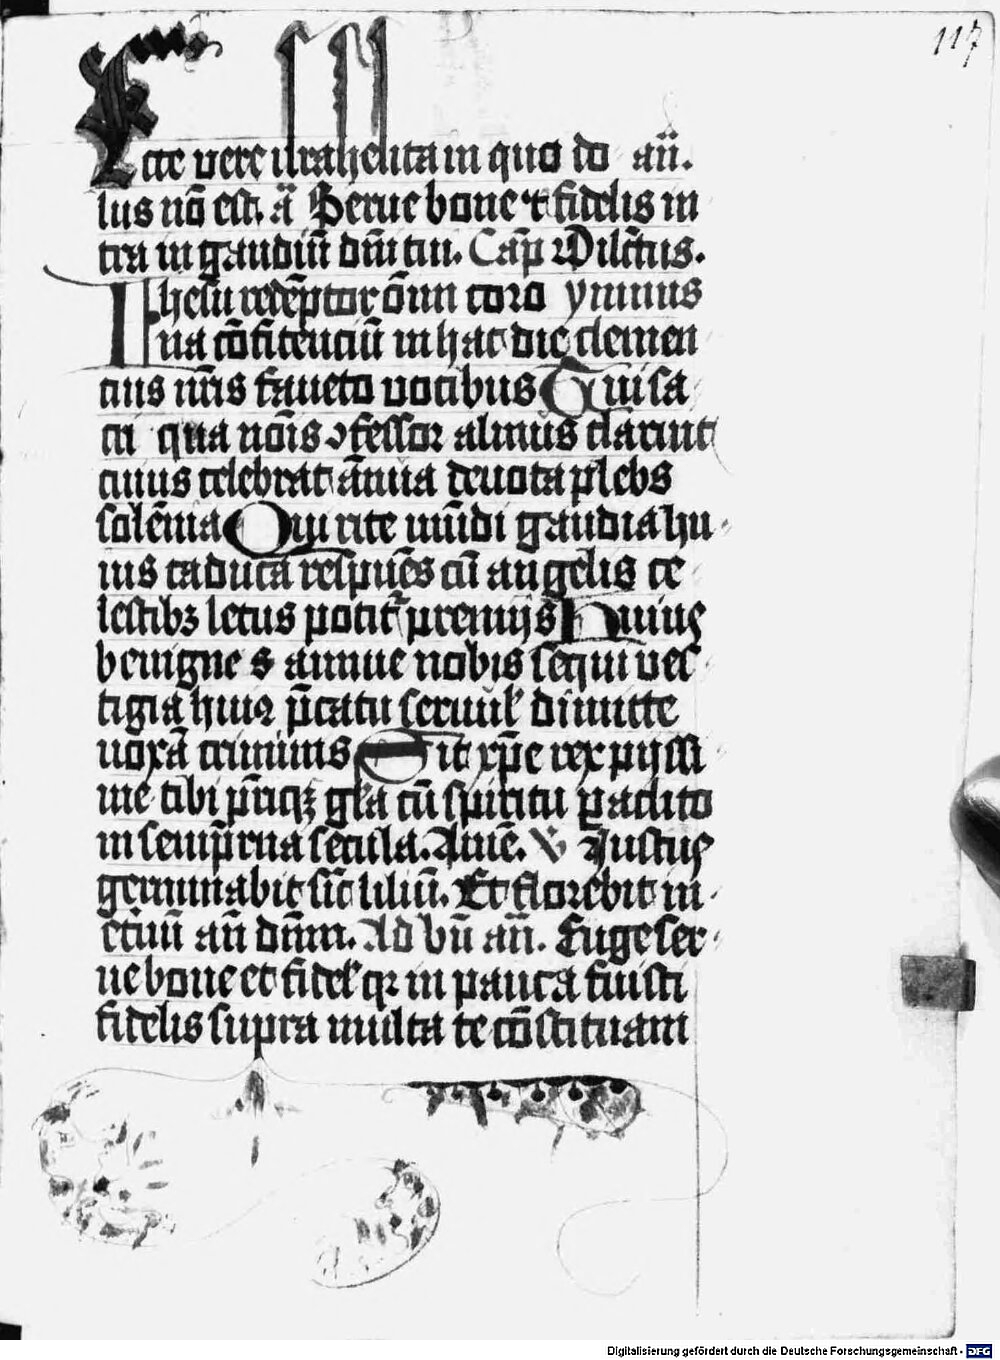 117
Ecce vere israhelita in quo do an̄.
lus nō est. a᷈ Serue bone ⁊ fidelis in
tra in gaudiū dn̄i tui. Cap̄ Dilc̄tus.
Ihesu redēptor ōīm coro ymnus
na cōfitenciū in hac die clemen
cius nr̄is faueto vocibus Tui sa
cri qua nōis ꝯfessor almus claruit
cuius celebrat ānua deuota plebs
solēnia Qui rite mūdi gaudia hu
ius caduca respuēs cū angelis ce
lestibꝫ letus potit᷑ premijs Huius
benigne annue nobis sequi ves
tigia huiꝰ p̄catu seruul' dimitte
noxā criminis Sit xp̄e rex pijssi
me tibi pr̄iqꝫ gl̄a cū spiritu paclito
in semp̄rna secula. Amē. V Justus
germinabit sic̄ liliū. Et florebit in
et̄nū an̄ dn̄m. Ad bn̄ an̄. Euge ser
ue bone et fidel' qꝛ in pauca fuisti
fidelis supra multa te cōstituam
Digitalisierung gefördert durch die Deutsche Forschungsgemeinschaft - DFG